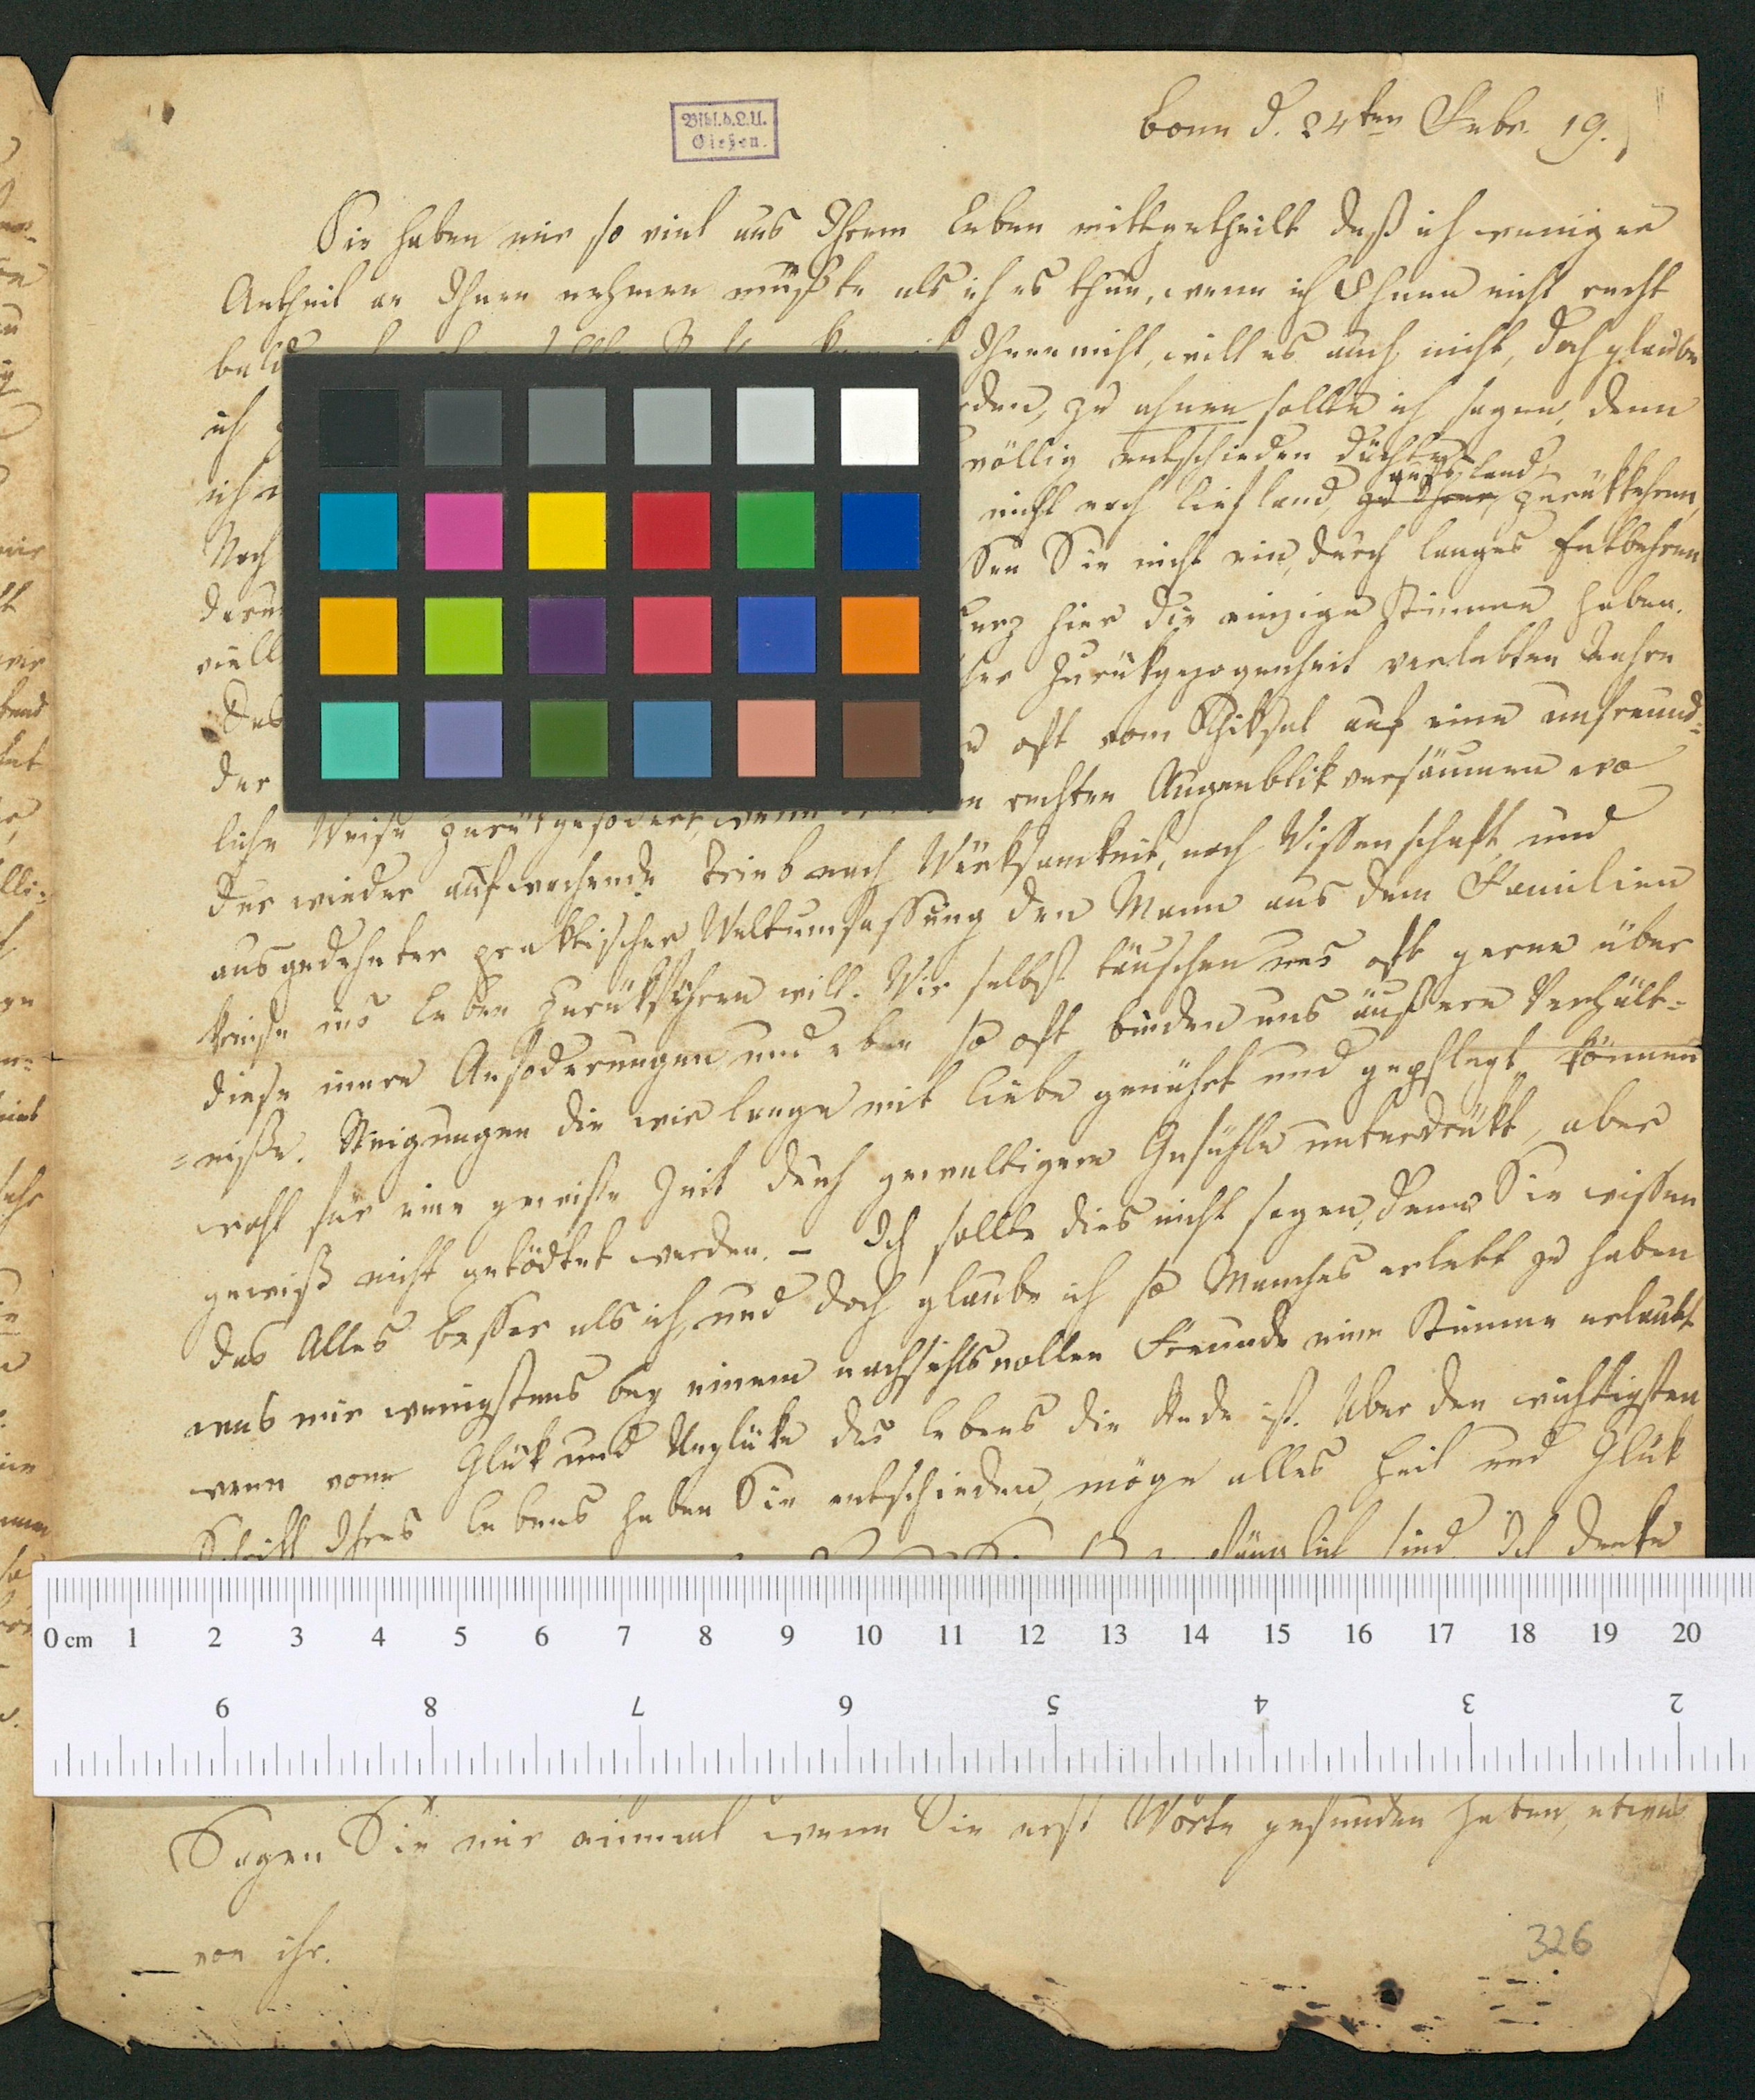 Bibl. d. L. U.
Gießen.
Bonn d. 24ten Febr. 19.
Sie haben mir so viel aus Ihrem Leben mittgetheilt daß ich weniger
Antheil an Ihnen nehmen müßte als ich es thue, wenn ich Ihnen nicht recht
bald Ihnen nicht, will es auch nicht, doch glaube
ich zu ahnen sollte ich sagen, denn
ich völlig entschieden dünkte
aus Liefland
Noch nicht nach Liefland, zurükkehren,
Sie nicht ein, durch langes Entbehren
hier die einzige Stimme haben.
Zurükgezogenheit verlebten Jahre
Das oft vom Schiksal auf eine unfreund=
der
liche Weise zurükgefodert, wenn rechten Augenblik versäumen wo
der wieder aufwachende Trieb nach Würksamkeit, nach Wissenschaft und
ausgedehnter praktischer Weltumfassung den Mann aus dem Familien
kreise ins Leben zurükführen will. Wir selbst täuschen uns oft gerne über
diese innere Anfoderungen und eben so oft binden uns äußere Verhält=
=niße. Neigungen die wir lange mit Liebe genährt und gepflegt können
wohl für eine gewisse Zeit durch gewaltigere Gefühle unterdrükt, aber
gewiß nicht getödtet werden. – Ich sollte dies nicht sagen, denn Sie wissen
das Alles besser als ich, und doch glaube ich so Manches erlebt zu haben
was mir wenigstens bey einem nachsichtsvollen Freunde eine Stimme erlaubt
wenn vom Glük und Unglüke des Lebens die Rede ist. Über den wichtigsten
Schritt Ihres Lebens haben Sie entschieden, möge alles Heil und Glük
sind. Ich denke
0 cm 1 2 3 4 5 6 7 8 9 10 11 12 13 14 15 16 17 18 19 20
9 8 7 6 5 4 3 2
Sagen Sie mir einmal wenn Sie erst Worte gefunden haben, etwas
von ihr.
326